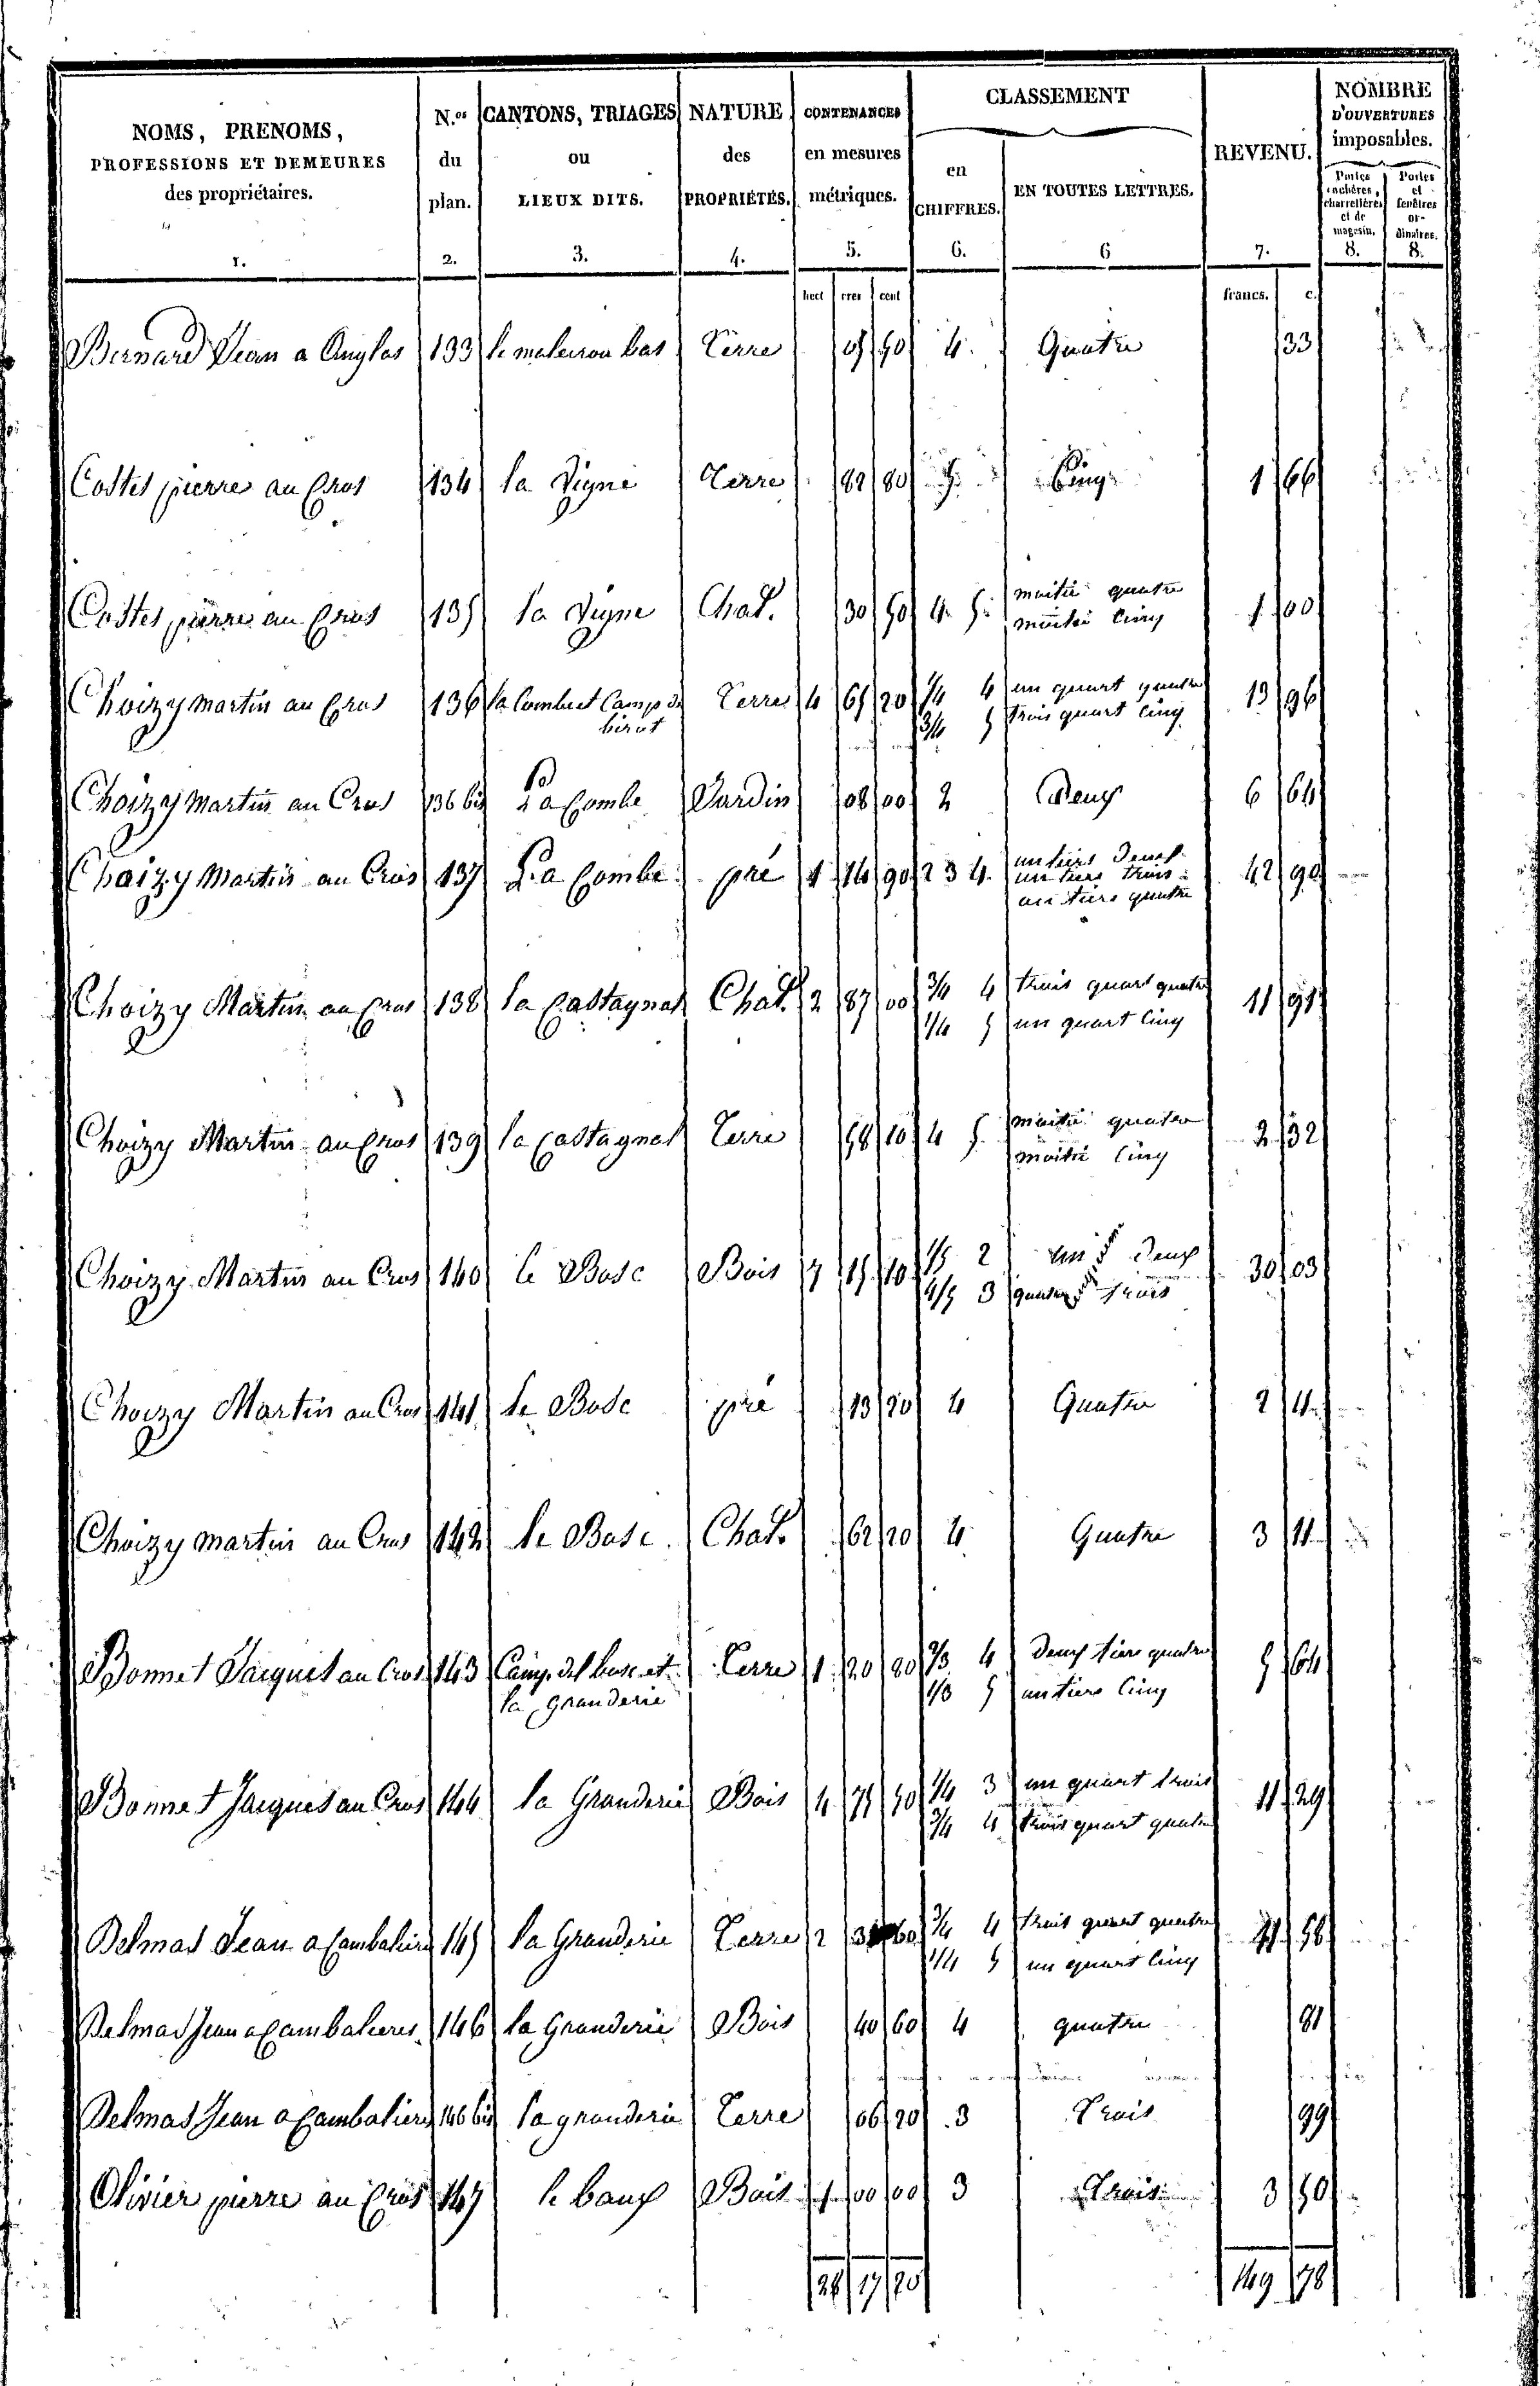 NOMS, PRENOMS, PROFESSIONS ET DEMEURES des propriétaires. 1.
N.os du plan. 2.
CANTONS, TRIAGES ou LIEUX DITS. 3.
NATURE des PROPRIÉTÉS. 4.
CONTENANCES en mesures métriques. 5.
CLASSEMENT
en CHIFFRES. 6.
EN TOUTES LETTRES. 6
REVENU. 7.
NOMBRE D'OUVERTURES imposables.
Portes cochères, charretières et de magasin. 8.
Portes et fenêtres ordinaires. 8.
hect ares cent francs. c.
Bernard Jean a Angles 133 le maleirou bas Terre 05 50 4. Quatre 33
Costes pierre au Cros 134 la Vigne Terre 82 80 5. Cinq 1 66
Costes pierre au Cros 135 la Vigne Chat. 30 50 4. 5. moitié quatre 1 00
moitié cinq
Choizy martin au Cros 136 la Combe et Camp de 
birot Terre 4 65 20 1/4 4 un quart quatre 13 96
3/4 5 trois quart cinq
Choizy martin au Cros 136 bis La Combe Jardin 08 00 2 Deux 6 64
Choizy Martin au Cros 137 La Combe pré 1 14 90 2 3 4. un tiers deux 42 90
un tiers trois
un tiers quatre
Choizy Martin au Cros 138 la Castagnal Chat. 2 87 00 3/4 4 trois quart quatre 11 91
1/4 5 un quart cinq
Choizy Martin au Cros 139 la Castagnal Terre 58 10 4 5. moitié quatre 2 32
moitié cinq
Choizy Martin au Cros 140 le Bosc Bois 7 15 10 1/5 2 un deux 30 03
4/5 3 quatre trois
Choizy Martin au Cros 141 le Bosc pré 13 20 4 Quatre 2 11
Choizy martin au Cros 142 le Bosc Chat. 62 20 4 Quatre 3 11
Bonnet Jacques au Cros 143 Camp del bosc et
la Granderie Terre 1 20 80 2/3 4 deux tiers quatre 5 64
1/3 5 un tiers cinq
Bonnet Jacques au Cros 144 la Granderie Bois 4 75 50 1/4 3 un quart trois 11 29
3/4 4 trois quart quatre
Delmas Jean a Cambalieres 145 la Granderie Terre 2 60 3/4 4 trois quart quatre 11 58
1/4 5 un quart cinq
Delmas Jean a Cambalieres 146 la Granderie Bois 40 60 4 quatre 81
Delmas Jean a Cambalieres 146 bis la granderie Terre 06 20 3 Trois 99
Olivier pierre au Cros 147 le baux Bois 1 00 00 3 Trois 3 50
28 17 20 149 78